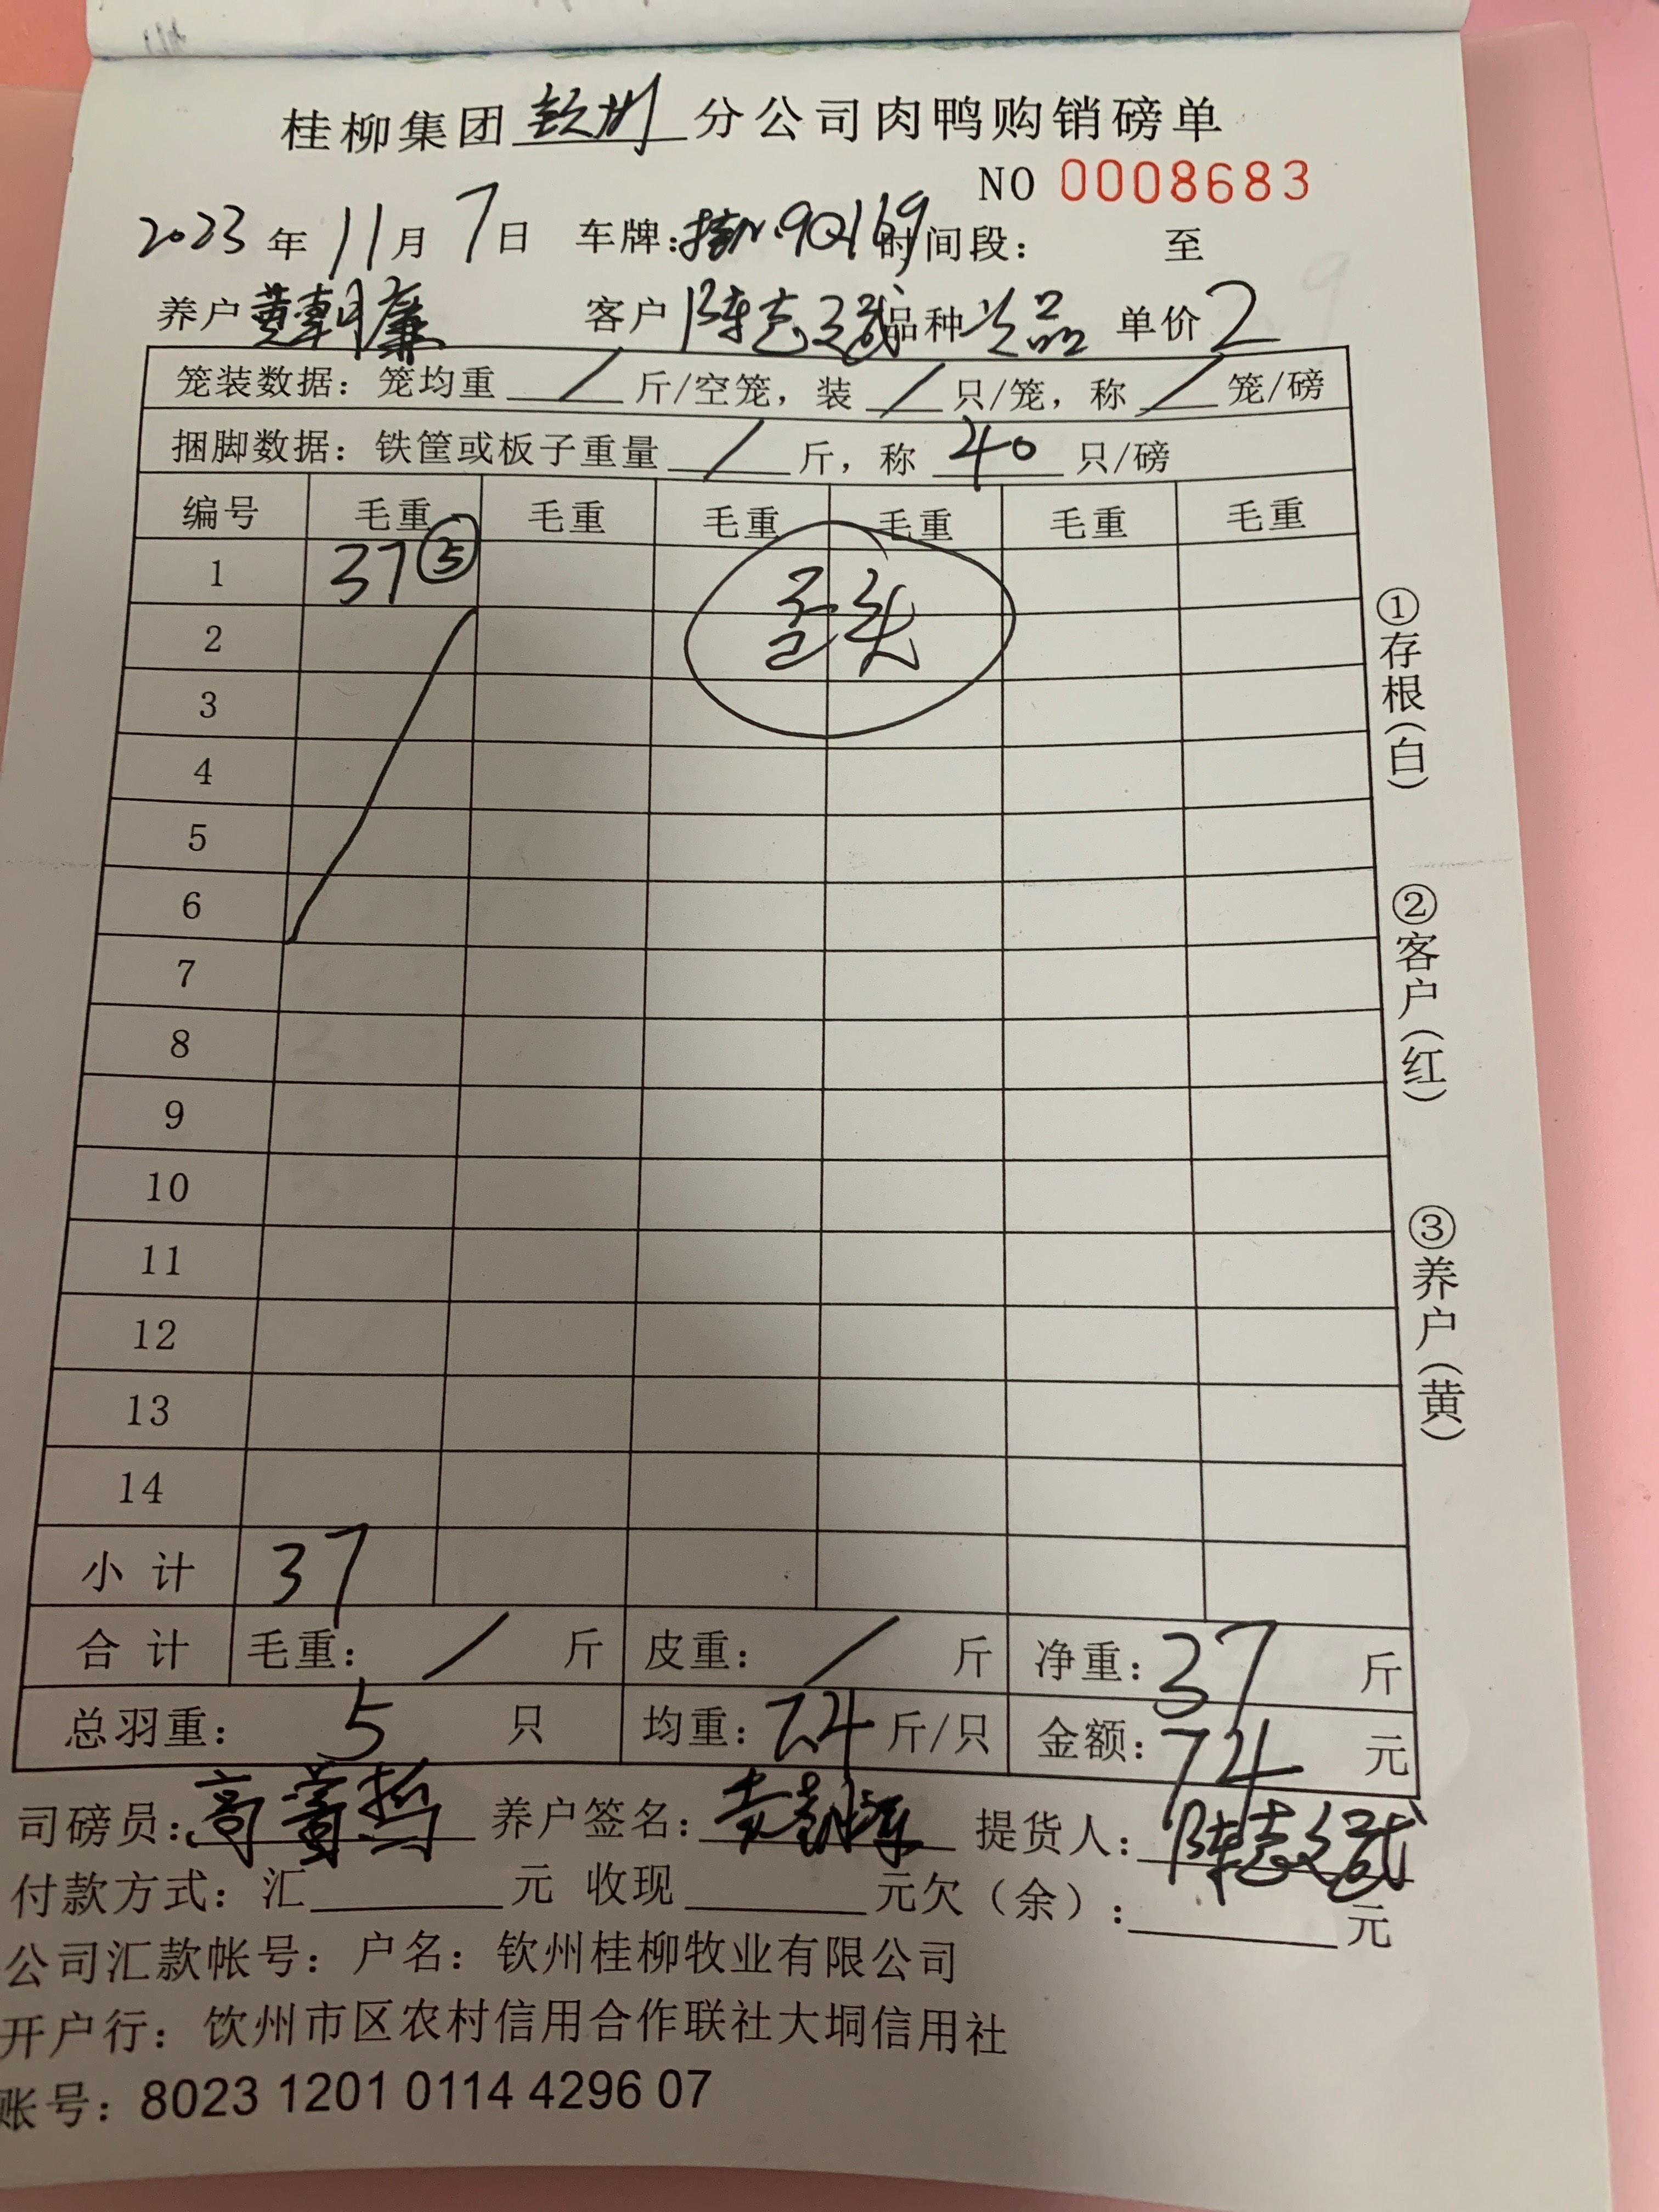 桂柳集团钦州分公司肉鸭购销磅单
NO 0008683
2023年11月7日 车牌:桂N.9Q169时间段: 至
养户黄朝廉 客户陈志斌品种次品 单价2
笼装数据：笼均重/斤/空笼，装/只/笼，称/笼/磅
捆脚数据：铁筐或板子重量/斤，称40只/磅
编号 毛重 毛重 毛重 毛重 毛重 毛重
1 37⑤
2 歪头
3
4
5
6
7
8
9
10
11
12
13
14
小计 37
合计 毛重:/斤 皮重:/斤 净重:37斤
总羽重:5只 均重:7.4斤/只 金额:74元
司磅员: 养户签名: 提货人:陈志斌
付款方式: 汇 元 收现 元欠（余）: 元
公司汇款帐号: 户名: 钦州桂柳牧业有限公司
开户行: 钦州市区农村信用合作联社大垌信用社
账号: 8023 1201 0114 4296 07
①存根(白)
②客户(红)
③养户(黄)